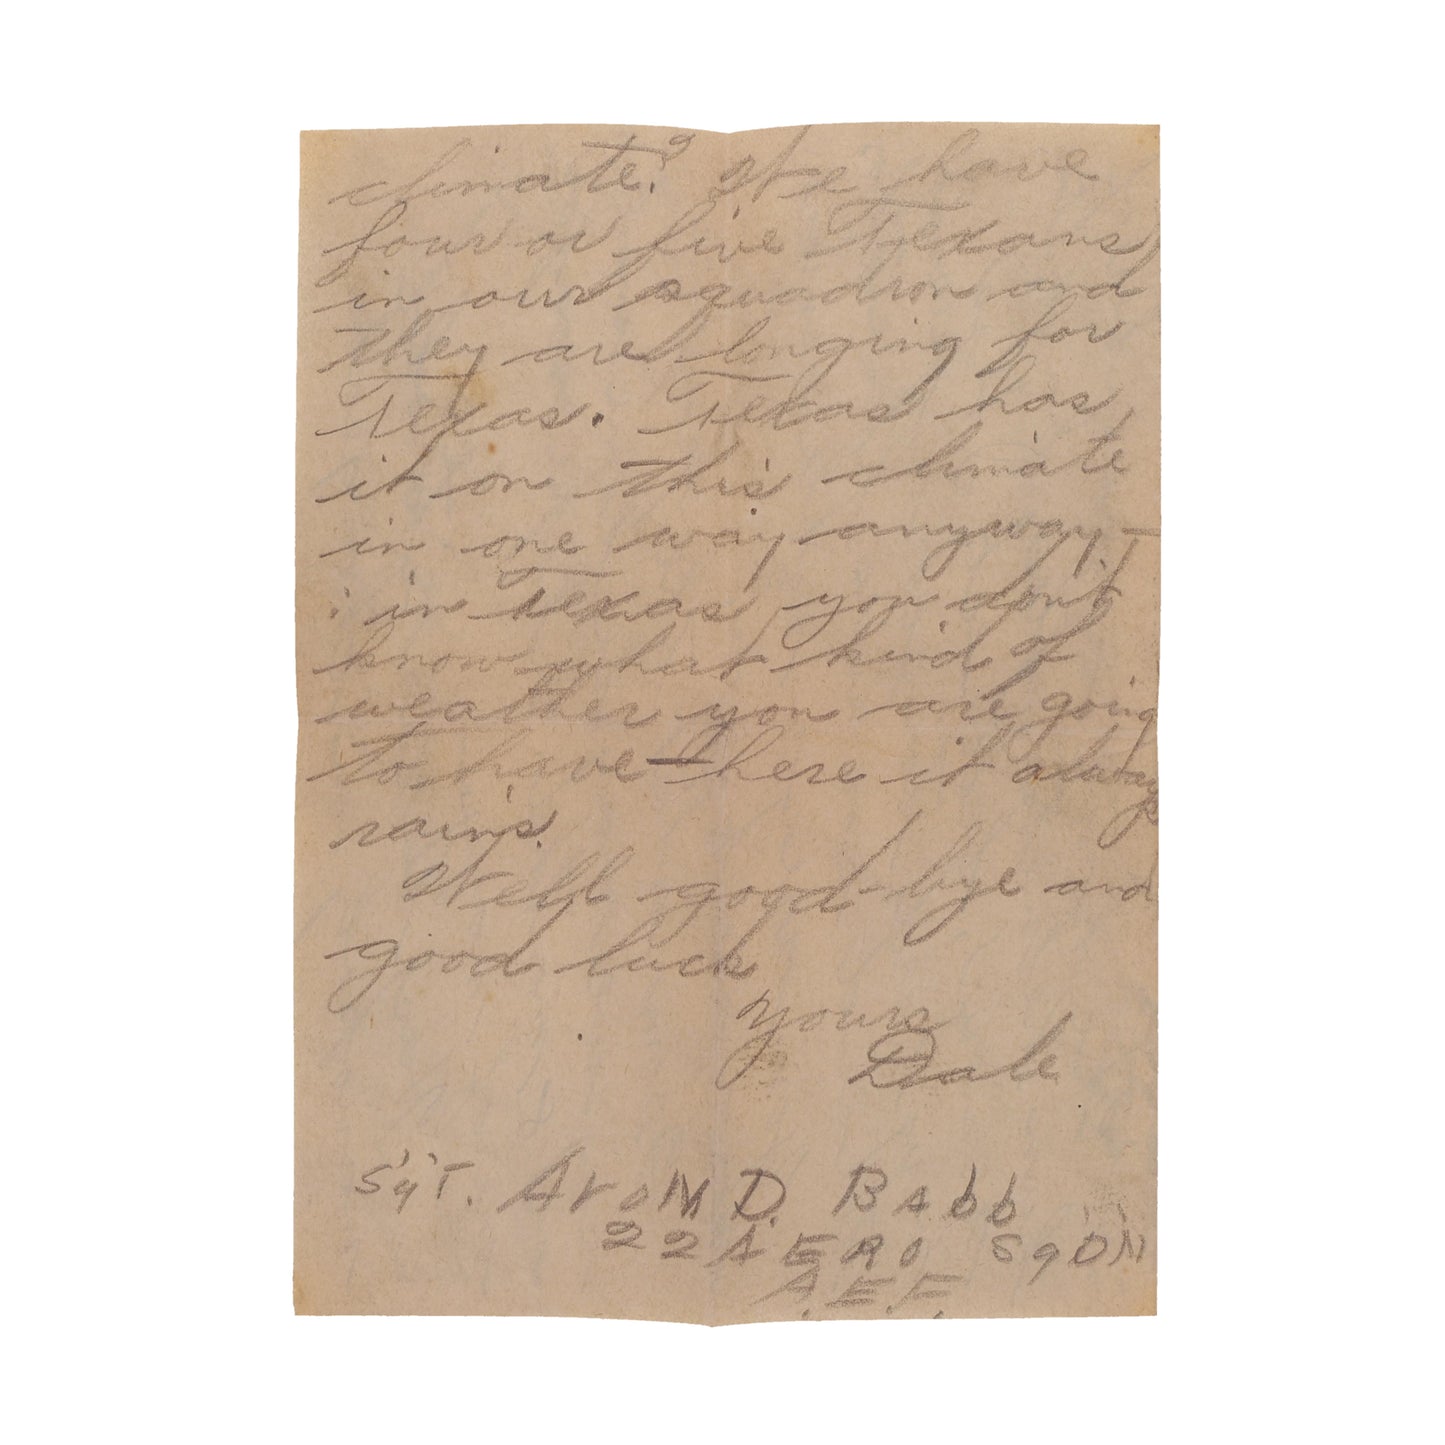 climate? We have
four or five Texans
in our squadron and
they are longing for
Texas. Texas has
it on this climate
in one way anyway, -
: in Texas you don't
know what kind of
weather you are going
to have - here it always
rains.
Well good-bye and
good luck
Yours
Dale
SgT. AroN D. BAbb
22 AERO SqDN
A.E.F.